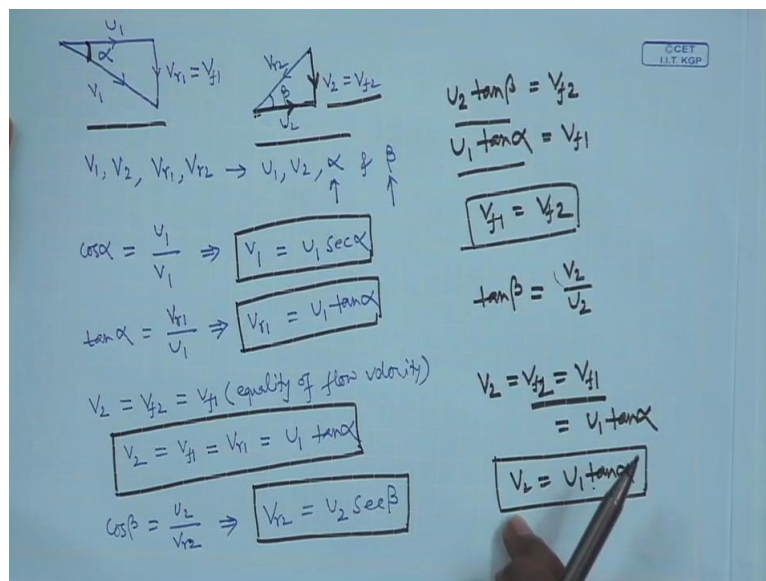 U1
α
V1
Vr1 = Vf1
Vr2
β
V2 = Vf2
U2
©CET
I.I.T. KGP
V1, V2, Vr1, Vr2 → U1, U2, α & β
cosα = U1/V1 ⇒ V1 = U1 secα
tanα = Vr1/U1 ⇒ Vr1 = U1 tanα
V2 = Vf2 = Vf1 (equality of flow velocity)
V2 = Vf1 = Vr1 = U1 tanα
cosβ = U2/Vr2 ⇒ Vr2 = U2 secβ
U2 tanβ = Vf2
U1 tanα = Vf1
Vf1 = Vf2
tanβ = V2/U2
V2 = Vf2 = Vf1
= U1 tanα
V2 = U1 tanα